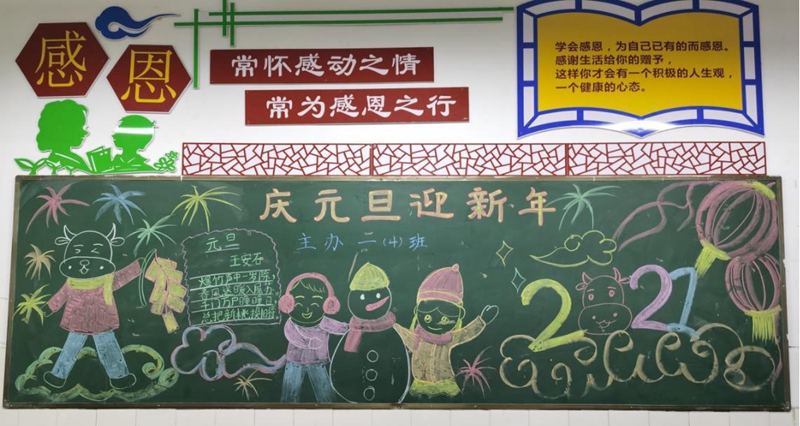 感恩
常怀感动之情
常为感恩之行
学会感恩,为自己已有的而感恩。
感谢生活给你的赠予,
这样你才会有一个积极的人生观,
一个健康的心态。
庆元旦迎新年
主办二(4)班
元旦
王安石
爆竹声中一岁除,
春风送暖入屠苏
千门万户曈曈日
总把新桃换旧符
2021